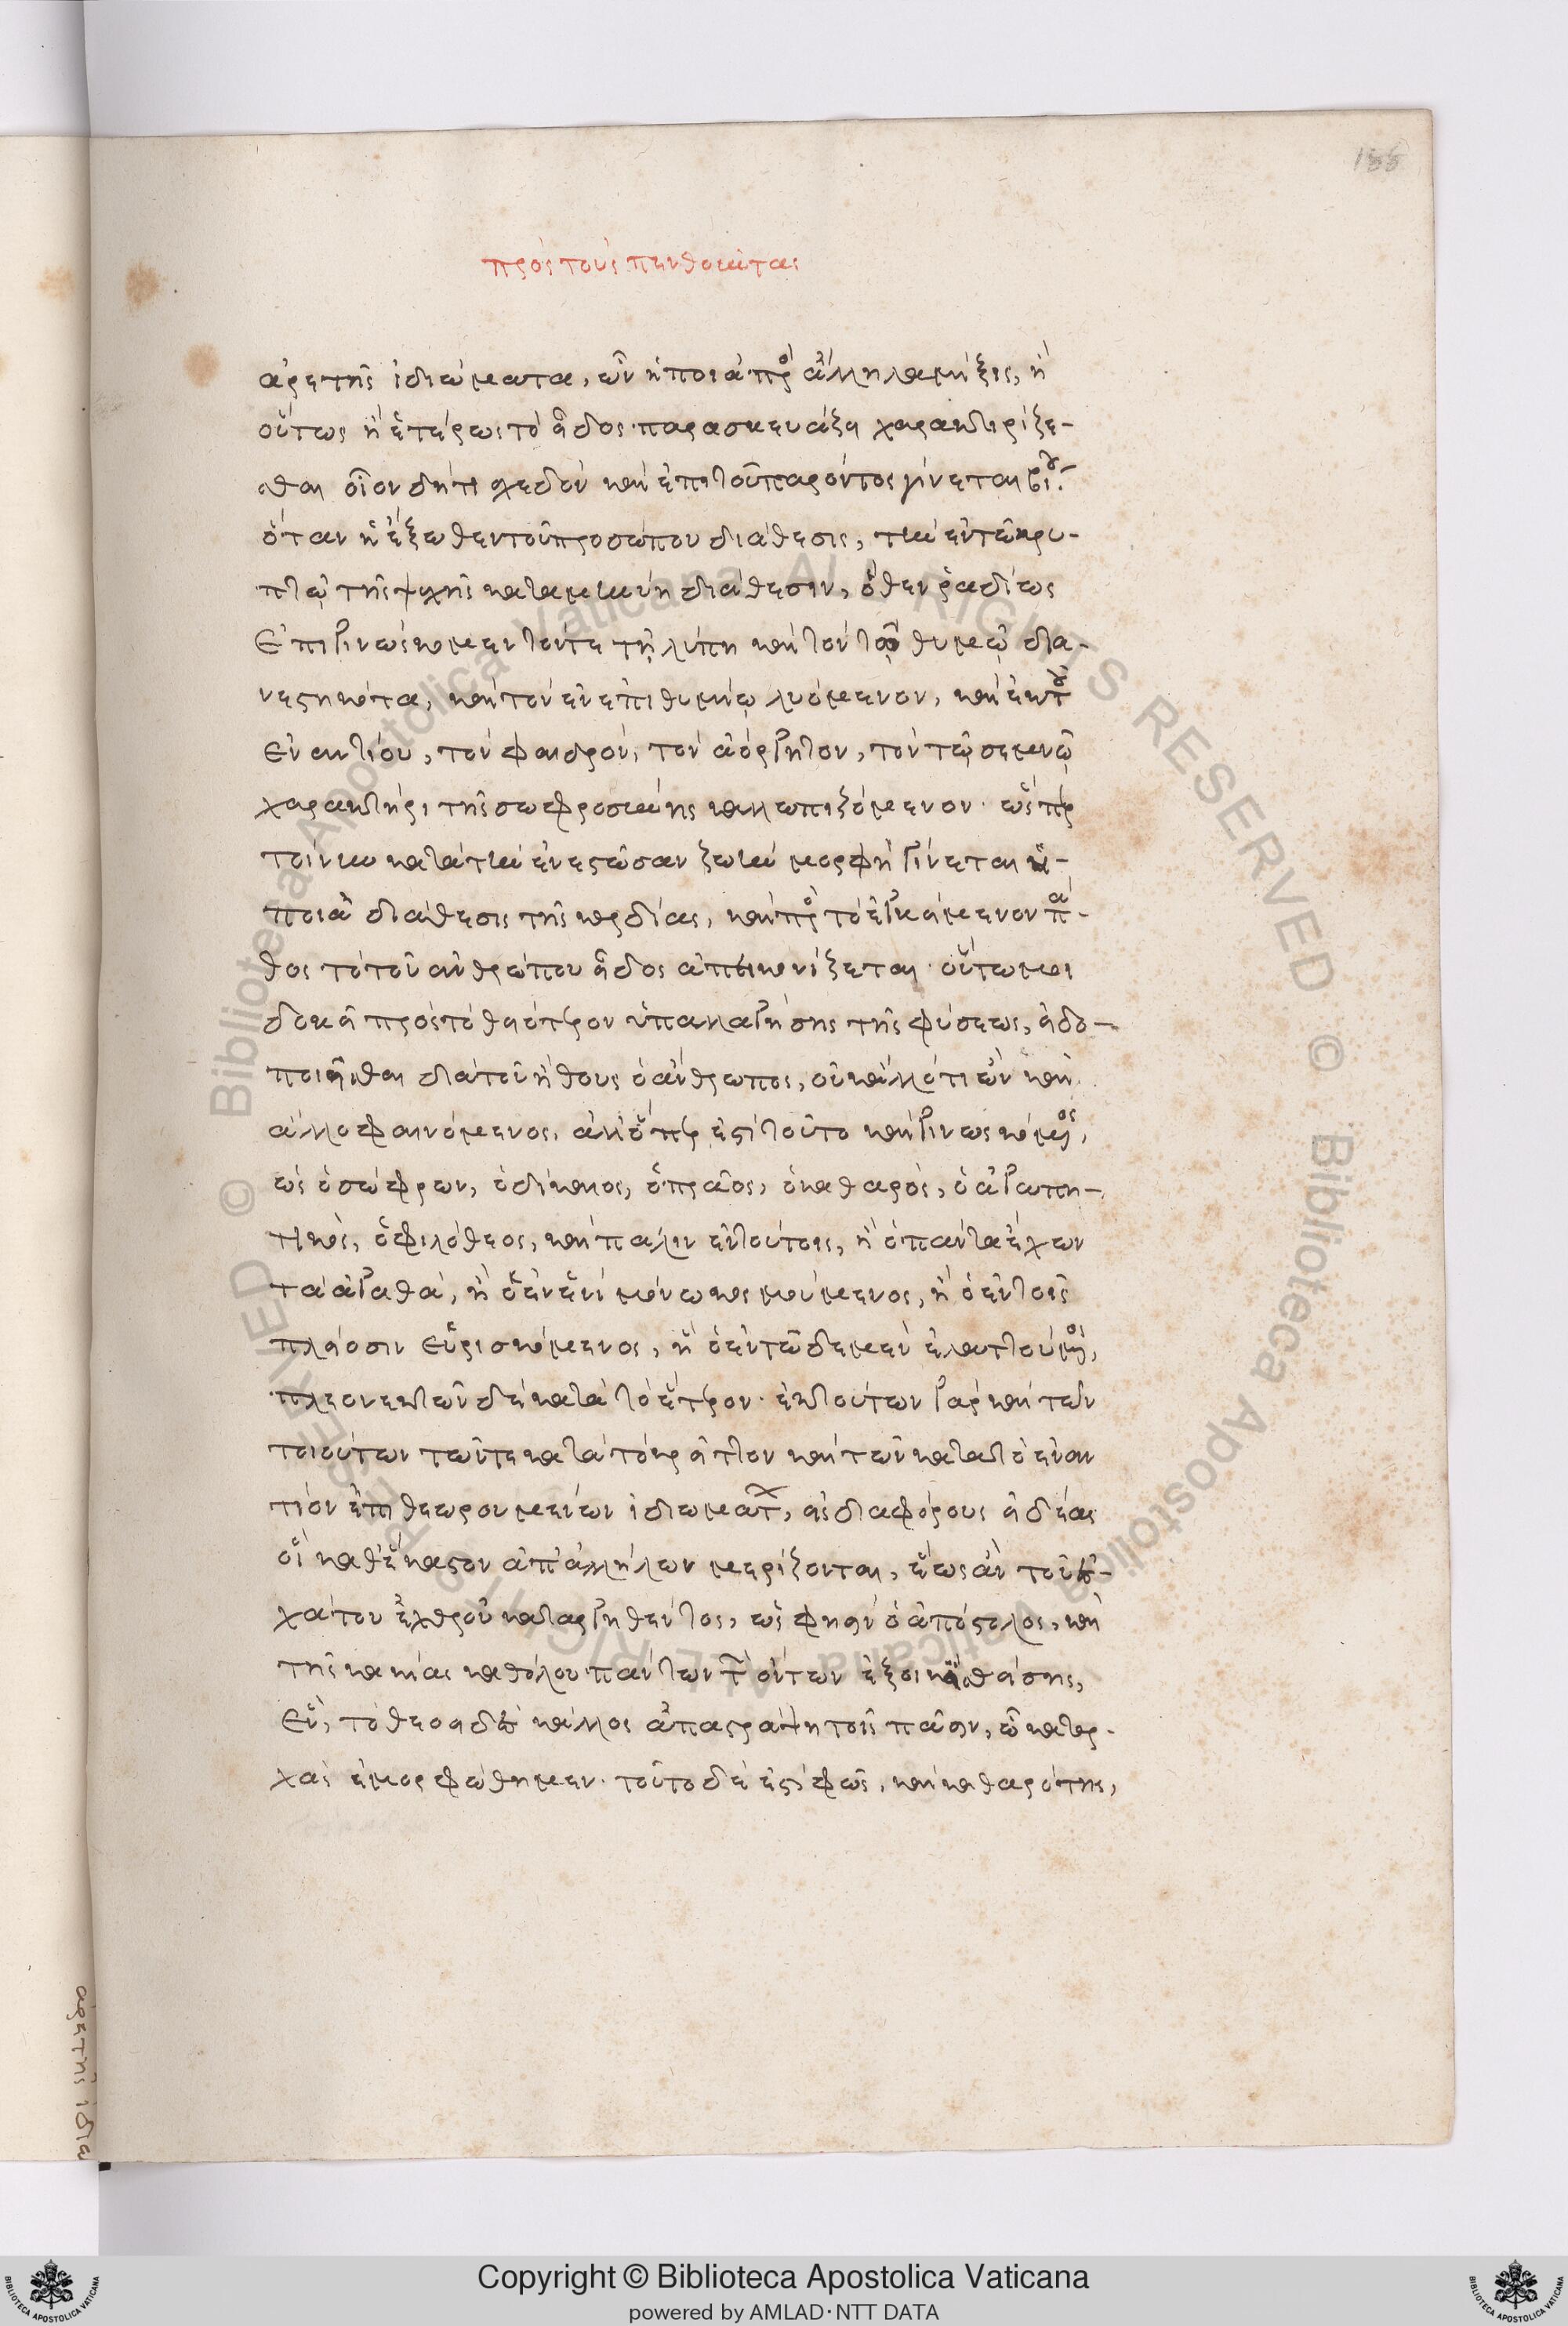 155
πρὸς τοὺς πενθοῦντας
ἀρετῆς ἰδιώματα, ὧν ἡ ποιὰ πρὸς ἄλληλα μίξις, ἢ
οὕτως ἢ ἑτέρως τὸ εἶδος παρασκευάζει χαρακτιρίζε-
σθαι οἷον δήτι σχεδὸν καὶ ἐπὶ τοῦ παρόντος γίνεται βίου.
ὅταν ἡ ἔξωθεν τοῦ προσώπου διάθεσις, τὴν ἐν τῶ κρυ-
πτῶ τῆς ψυχῆς καταμηνύη διάθεσιν, ὅθεν ῥαδίως
ἐπιγινώσκομεν τόντε τῇ λύπη καὶ τὸν τῷ θυμῷ δια-
νεστηκότα, καὶ τὸν ἐν ἐπιθυμίᾳ λυόμενον, καὶ ἐκ τοῦ
ἐναντίου, τὸν φαιδρὸν, τὸν ἀόργητον, τὸν τῷ σεμνῷ
χαρακτῆρι τῆς σωφροσύνης καλλωπιζόμενον· ὥσπερ
τοίνυν κατὰ τὴν ἐνεστῶσαν ζωὴν μορφὴ γίνεται ἡ
ποιὰ διάθεσις τῆς καρδίας, καὶ πρὸς τὸ ἐγκείμενον πά-
θος τὸ τοῦ ἀνθρώπου εἶδος ἀπεικονίζεται· οὕτω μοι
δοκεῖ πρὸς τὸ θειότερον ὑπαλλαγείσης τῆς φύσεως, εἰδο-
ποιεῖσθαι διὰ τοῦ ἤθους ὁ ἄνθρωπος, οὐκ ἄλλό τι ὢν καὶ
ἄλλο φαινόμενος, ἀλλ' ὅπερ ἐστὶ τοῦτο καὶ γινωσκόμενος,
ὡς ὁ σώφρων, ὁ δίκαιος, ὁ πρᾶος, ὁ καθαρὸς, ὁ ἀγαπη-
τικὸς, ὁ φιλόθεος, καὶ πάλιν ἐν τούτοις, ἢ ὁ πάντα ἔχων
τὰ ἀγαθά, ἢ ὁ ἐν ἑνὶ μόνω κοσμούμενος, ἢ ὁ ἐν τοῖς
πλείοσιν εὑρισκόμενος, ἢ ὁ ἐν τῶδε μὲν ἐλαττούμενος,
πλεονεκτῶν δὲ κατὰ τὸ ἕτερον· ἐκ τούτων γὰρ καὶ τῶν
τοιούτων τῶντε κατὰ τὸ κρεῖττον καὶ τῶν κατὰ τὸ ἐναν
τίον ἐπιθεωρουμένων ἰδιωμάτων, εἰς διαφόρους εἰδέας
οἱ καθέκαστον ἀπ' ἀλλήλων μερίζονται, ἕως ἂν τοῦ ἐσ-
χάτου ἐχθροῦ καταργηθέντος, ὥς φησιν ὁ ἀπόστολος, καὶ
τῆς κακίας καθόλου πάντων τῶν ὄντων ἐξοικισθείσης,
ἓν, τὸ θεοειδὲς κάλλος ἀπαστράψη τοῖς πᾶσιν, ὧ κατ' ἀρ-
χὰς ἐμορφώθημεν· τοῦτο δέ ἐστι φῶς, καὶ καθαρότης,
ἀρετῆς ἰδιω
Copyright © Biblioteca Apostolica Vaticana
powered by AMLAD·NTT DATA